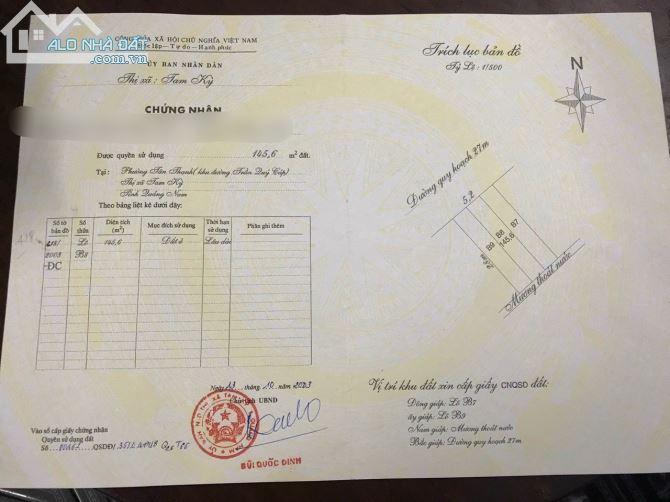 ALO NHÀ ĐẤT
.com.vn
CỘNG HÒA XÃ HỘI CHỦ NGHĨA VIỆT NAM
Độc lập - Tự do - Hạnh phúc
ỦY BAN NHÂN DÂN
Thị xã : Tam Kỳ
CHỨNG NHẬN
Được quyền sử dụng 145,6 m² đất.
Tại : Phường Tân Thạnh( khu đường Trần Quý Cáp)
Thị xã Tam Kỳ
Tỉnh Quảng Nam
Theo bảng liệt kê dưới dây:
Số tờ bản đồ Số thửa Diện tích (m²) Mục đích sử dụng Thời hạn sử dụng Phần ghi thêm
Lô 145,6 Đất ở Lâu dài
2003 B8
-ĐC
tháng 10 năm 2003
UBND
Vào sổ cấp giấy chứng nhận
Quyền sử dụng đất
Số QSDĐ/
BÙI QUỐC ĐINH
Trích lục bản đồ
Tỷ Lệ : 1/500
N
Đường quy hoạch 27m
5,2
B9
B8
145,6
B7
28m
Mương thoát nước
Vị trí khu đất xin cấp giấy CNQSD đất:
Đông giáp: Lô B7
ây giáp: Lô B9
Nam giáp: Mương thoát nước
Bắc giáp: Đường quy hoạch 27m